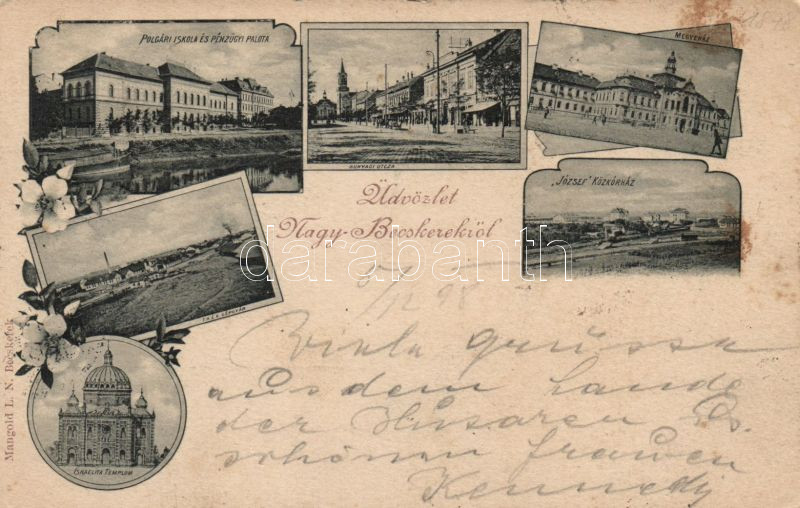 1898
POLGÁRI ISKOLA ÉS PÉNZÜGYI PALOTA
HUNYADI UTCZA
MEGYEHÁZ
„JÓZSEF” KÖZKÓRHÁZ
Üdvözlet
Nagy-Becskerekről
darabanth
5/12 98
Viele grüsse
aus dem lande
der Husaren &
schönen frauen
Kennedy
ISRAELITA TEMPLOM
Mangold L. N. Becskerek